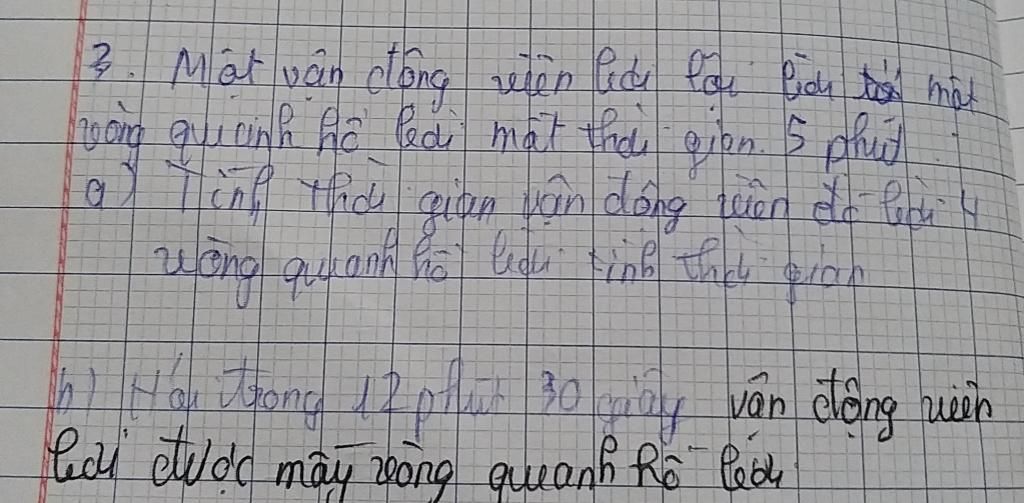 3. Một vận động viên bơi lội bơi một
vòng quanh hồ bơi mất thời gian 5 phút
a) Tính thời gian vận động viên đó bơi 4
vòng quanh hồ bơi tính thời gian
b) Hỏi trong 12 phút 30 giây vận động viên
bơi được mấy vòng quanh hồ bơi